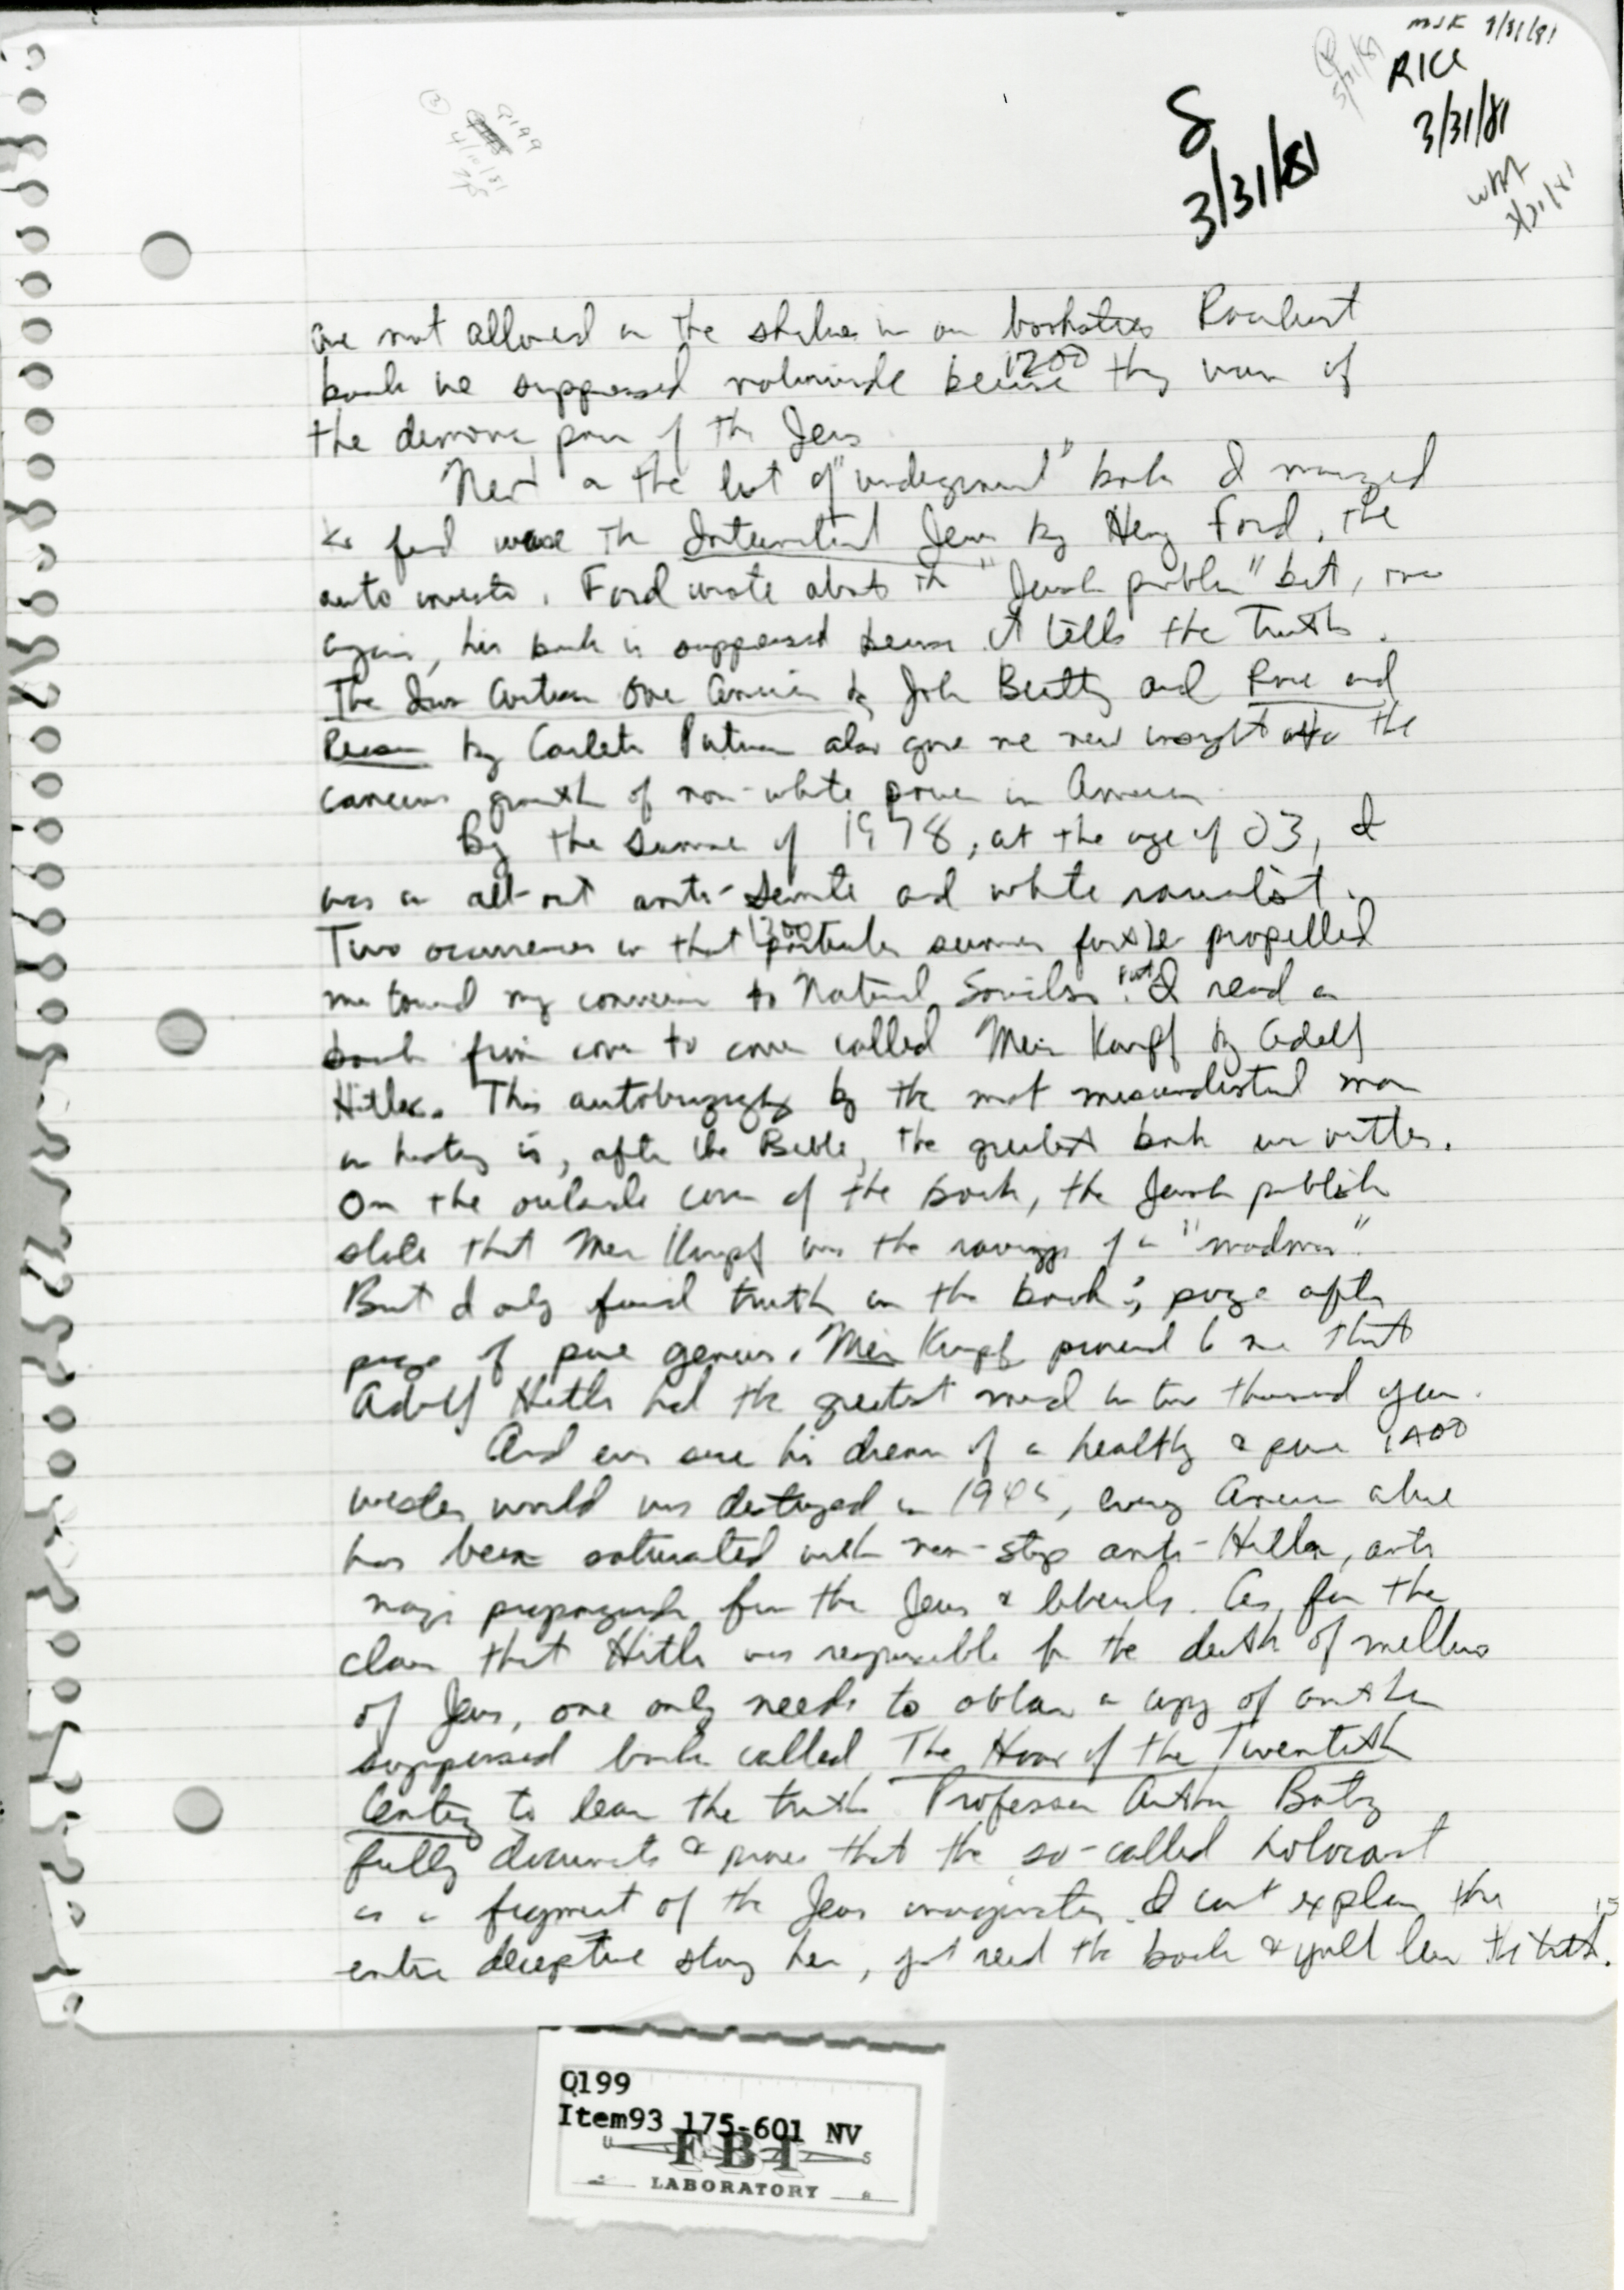 MJK 3/31/81
RICE
3/31/81
S
3/31/81
WMA
3/31/81
Q199
4/10/81
are not allowed on the shelves in our bookstores Racialist
1200
books are suppressed nationwide because they warn of
the demonic power of the Jews
Next on the list of "underground" books I managed
to find was The International Jew by Henry Ford, the
auto inventor. Ford wrote about the "Jewish problem" but, once
again, his book is suppressed because it tells the Truth.
The Iron Curtain Over America by John Beatty and Race and
Reason by Carleton Putnam also gave me new insight into the
cancerous growth of non-white power in America
By the summer of 1978, at the age of 23, I
was an all-out anti-Semite and white racialist.
1300
Two ocurrences in that particular summer further propelled
me toward my conversion to National Socialism. First I read a
book from cover to cover called Mein Kampf by Adolf
Hitler. This autobiography by the most misunderstood man
in history is, after the Bible, the greatest book ever written.
On the outside cover of the book, the Jewish publish
state that Mein Kampf was the ravings of a "madman".
But I only found truth in the book; page after
page of pure genius. Mein Kampf proved to me that
Adolf Hitler had the greatest mind in two thousand years.
And ever since his dream of a healthy & pure 1400
western world was destroyed in 1945, every American alive
has been saturated with non-stop anti-Hitler, anti
nazi propaganda from the Jews & liberals. As for the
claim that Hitler was responsible for the death of millions
of Jews, one only needs to obtain a copy of another
suppressed book called The Hoax of the Twentieth
Century to learn the truth. Professor Arthur Butz
fully documents & proves that the so-called holocaust
is a figment of the Jews imagination. I can't explain the 15
entire deceptive story here, just read the book & you'll learn the truth.
Q199
Item93 175-601 NV
U S
FBI
LABORATORY